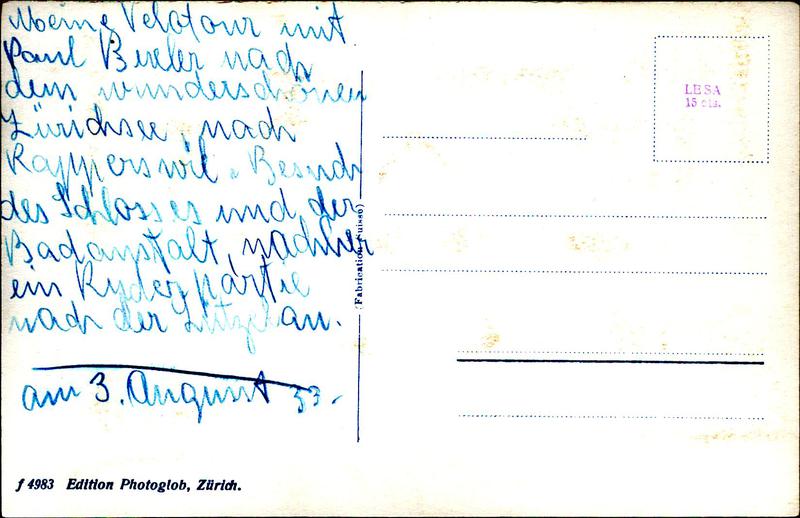 Meine Velotour mit
Paul nach
dem wunderschönen
Zürichsee, nach
Rapperswil. Besuch
des Schlosses und der
Badanstalt, nachher
ein Ruder partie
nach der Lützelau.
am 3. August 53.
f 4983 Edition Photoglob, Zürich.
(Fabrication Suisse)
LESA
15 cts.